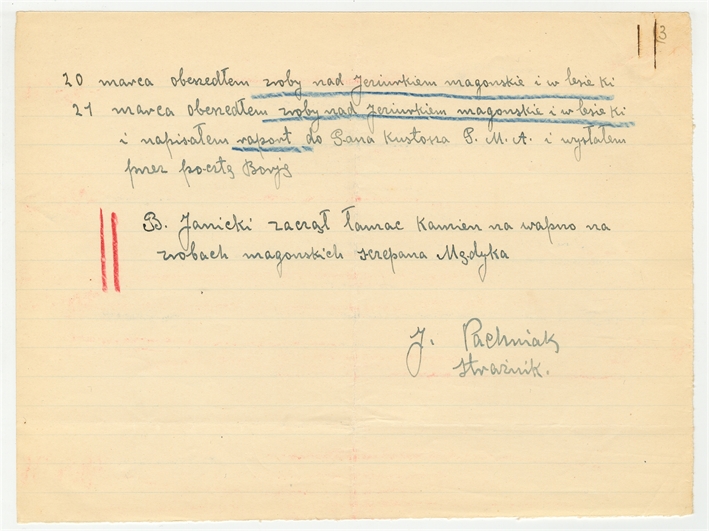 3
20 marca obszedłem zroby nad Jeziurkiem magonskie i w lesie ki
21 marca obszedłem zroby nad Jeziurkiem magonskie i w lesie ki
i napisałem raport do Pana Kustosza P. M. A. i wysłałem
przez pocztę
B. Janicki zaczął łamac Kamien na wapno na
zrobach magonskich szczepana Mądyka
J. Pachniak
strażnik.